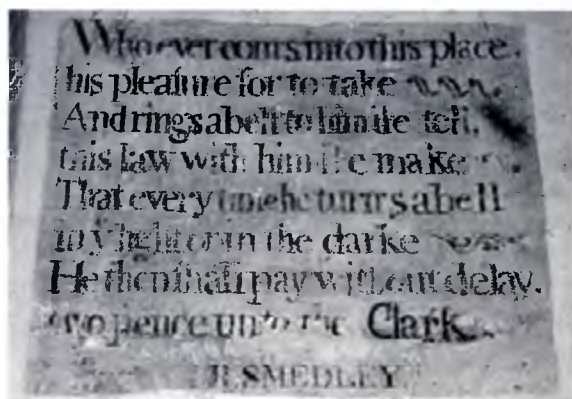 Whoever coms into this place.
his pleasure for to take
And rings a bell to him ile tell,
this law with him ile make
That every time he turns a bell
in light or in the darke
He then shall pay without delay.
two pence unto the Clark
R SMEDLEY